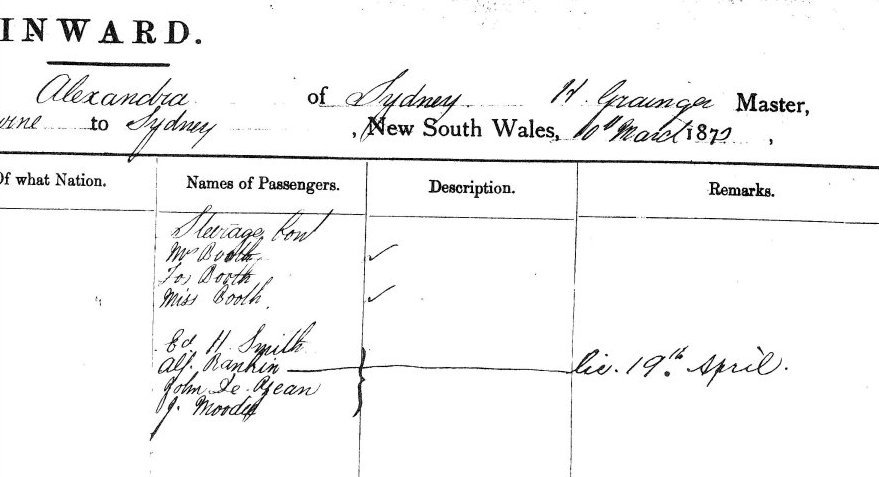 INWARD.
Alexandra of Sydney H Grainger Master,
urne to Sydney , New South Wales, 10th March 1872 ,
Of what Nation. Names of Passengers. Description. Remarks.
Steerage Cont
Mrs Booth ✓
Jos Booth
Miss Booth ✓
Ed. H. Smith
Alf. Rankin lic. 19th April.
John
J. Moodey